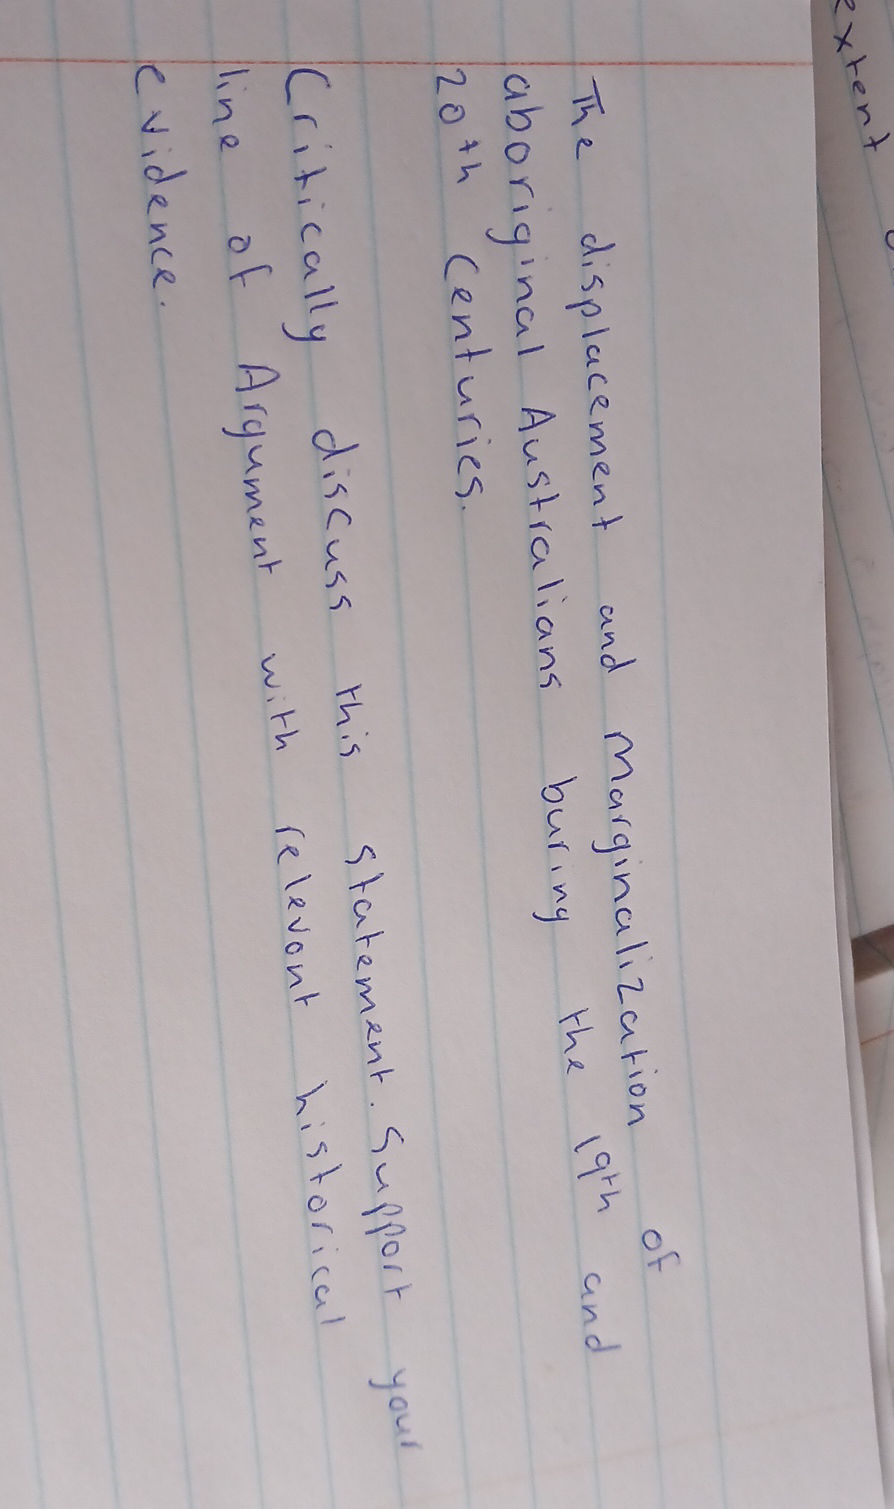 extent
The displacement and marginalization of
aboriginal Australians buring the 19th and
20th Centuries.
Critically discuss this statement. Support your
line of Argument with relevant historical
evidence.